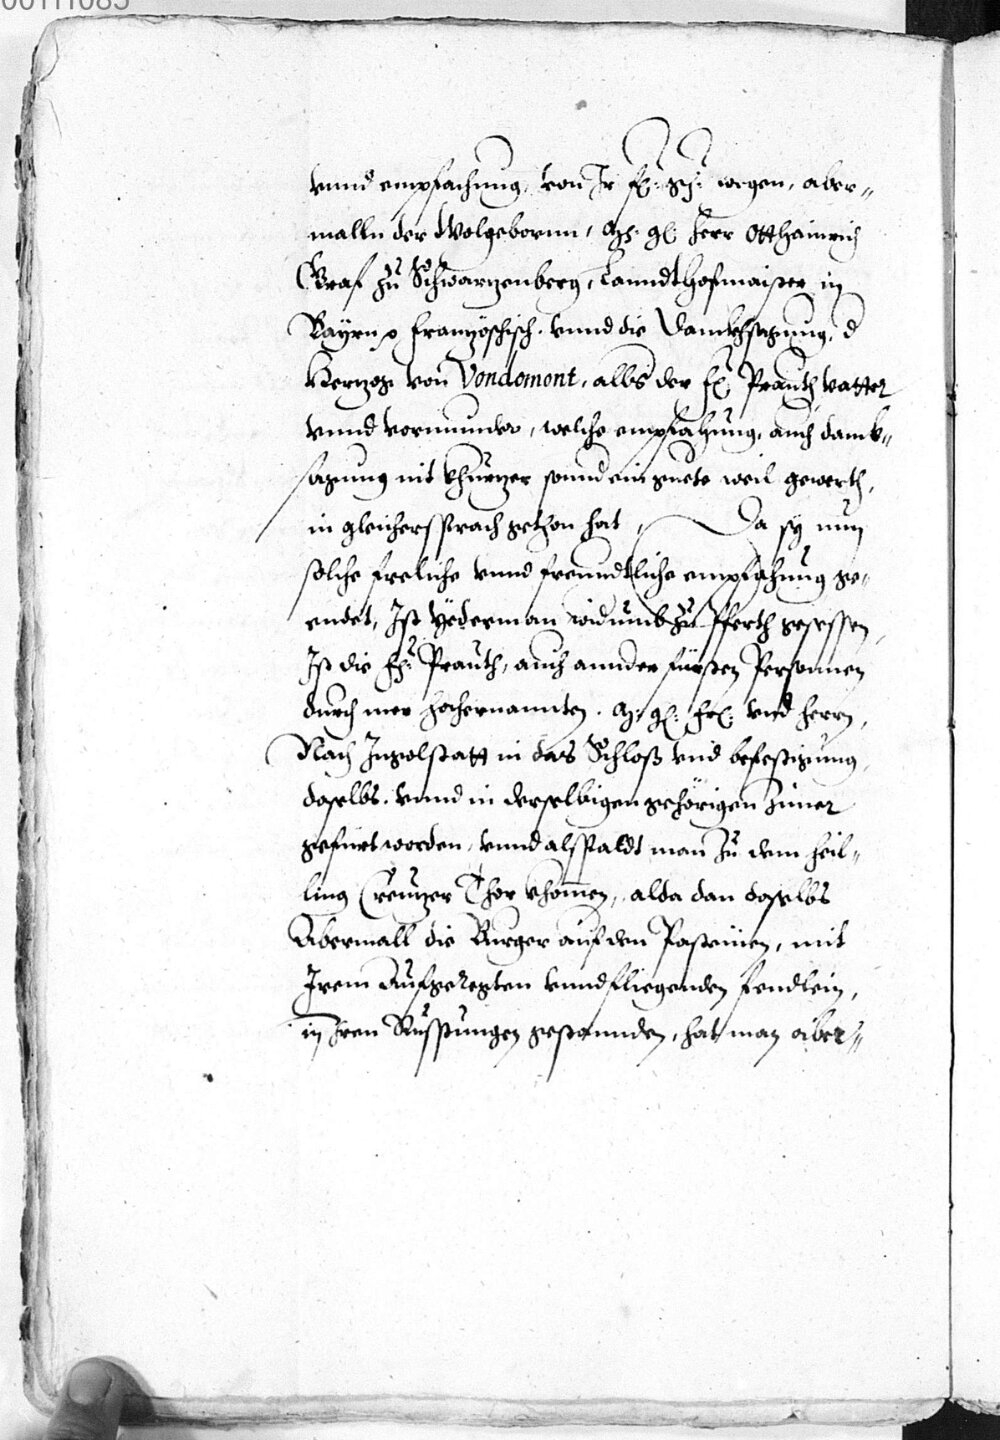 00111085
vnnd empfachung, von Ir fr: gn: wegen, aber„
malln der Wolgeborun, Gn: gl: herr Ottheinrich
Graf zu Schwarzenberg, Lanndthofmaister in
Bayrn ꝛc französchisch. vnnd die Danckhsagung, d
Herzog von Vondomont, alls der fr: Prauth vatter
vnnd vormunder, welche empfahung, auch danck„
sagung nit khurzer sonnd ein guete weil gewerth,
in gleicher sprach gethon hat, Da sy nun
solche freliche vnnd freundtliche empfahung ge„
endet, Ist yederman widumb zu Pferth gesessen,
Ist die fr: Prauth, auch annder fürsten Personnen
durch mer hochernannten. G: gl: fr: vnd herrn,
Nach Ingolstatt in das Schloß vnd befestigung,
daselbs. vnnd in derselbigen gehörigen Zimer
gefuert worden, vnnd alspaldt man zu dem heil„
ling Creuzer Thor khomen, alda dan daselbs
Abermall die Burger auf den Pasteuen, mit
Irem Aufgeregten vnnd fliegenden fendlein,
in Iren Russtungen gestannden, hat man aber„